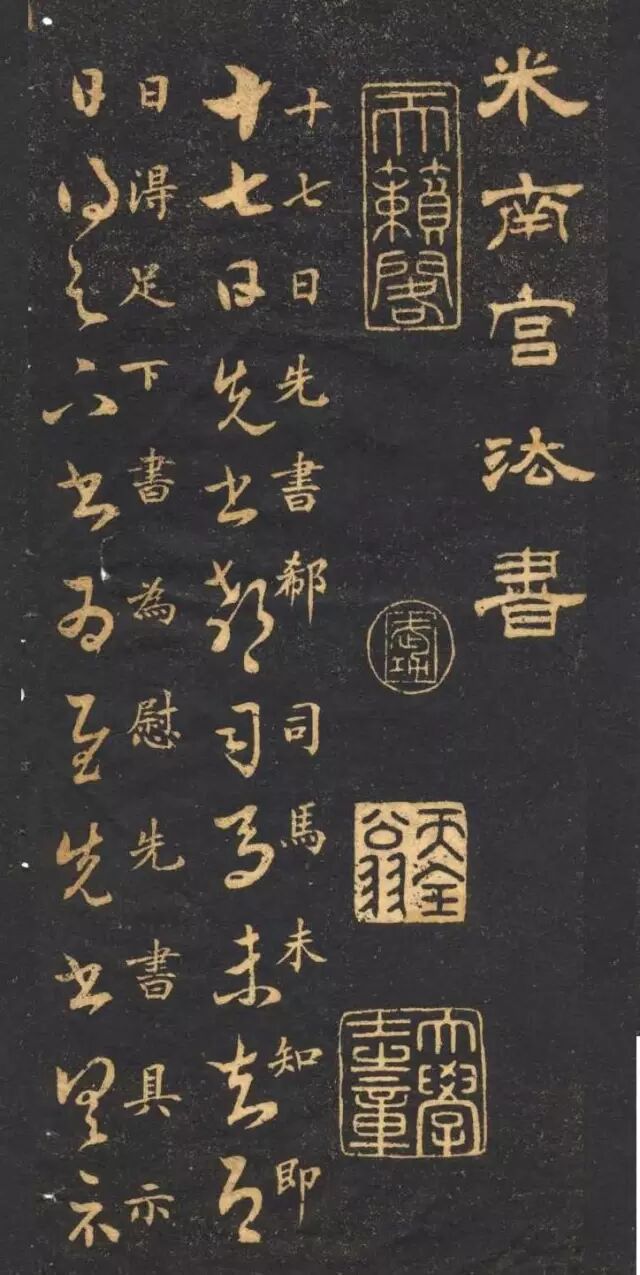 米南宫法書
天籟閣
天全翁
十七日先書郗司馬未知即
十七日先書郗司馬未去即
日淂足下書為慰先書具示
日得足下書為慰先書具示